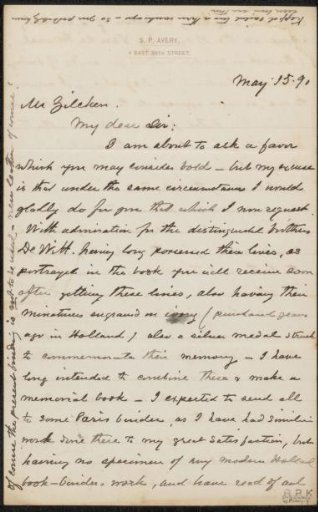 S. P. AVERY,
4 EAST 38TH STREET.
May 15. 90
Mr Zilcken.
My dear Sir:
I am about to ask a favor
which you may consider bold – but my excuse
is that under the same circumstances I would
gladly do for you that which I now request.
With admiration for the distinguished brothers
De Witt, having long possessed their lives, as
portrayed in the book you will receive soon
after getting these lines, also having their
miniatures engraved on (purchased years
ago in Holland) also a silver medal struck
to commemorate their memory – I have
long intended to combine these & make a
memorial book – I expected to send all
to some Paris binder, as I have had similar
work done there to my great satisfaction, but
having no specimen of any modern Holland
book-binders work, and have read of art
of course the present binding is not to be used – new leather of course!